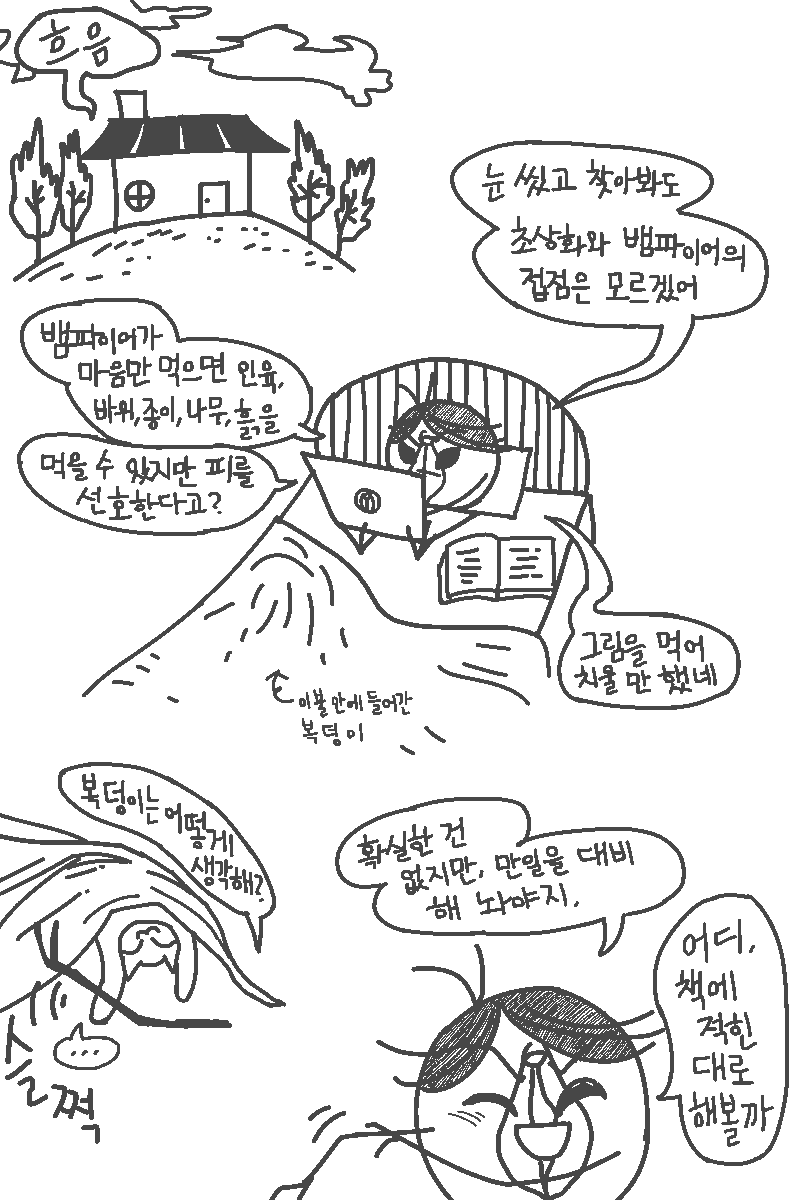 흐음
눈 씻고 찾아봐도
초상화와 뱀파이어의
접점은 모르겠어
뱀파이어가
마음만 먹으면 인육,
바위, 종이, 나무, 흙을
먹을 수 있지만 피를
선호한다고?
그림을 먹어
치울 만 했네
이불 안에 들어간
복덩이
복덩이는 어떻게
생각해?
슬쩍
...
확실한 건
없지만, 만일을 대비
해 놔야지.
어디,
책에
적힌
대로
해볼까